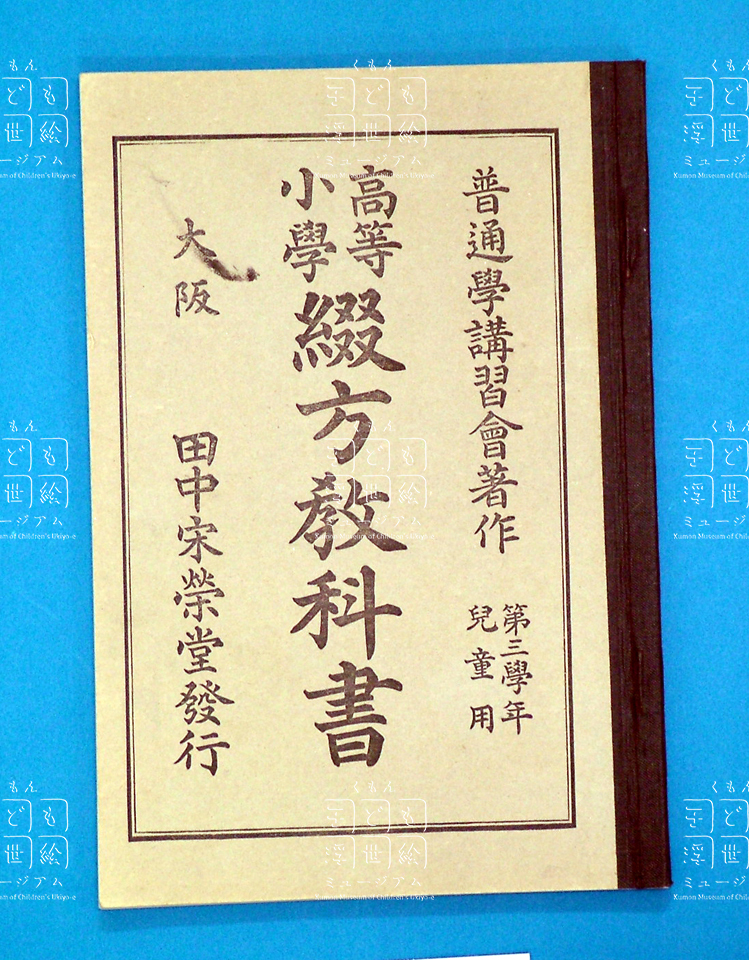 普通學講習會著作
第三學年
兒童用
高等
小學
綴方敎科書
大阪
田中宋榮堂發行
くもん
子ども
浮世絵
ミュージアム
Kumon Museum of Children's Ukiyo-e